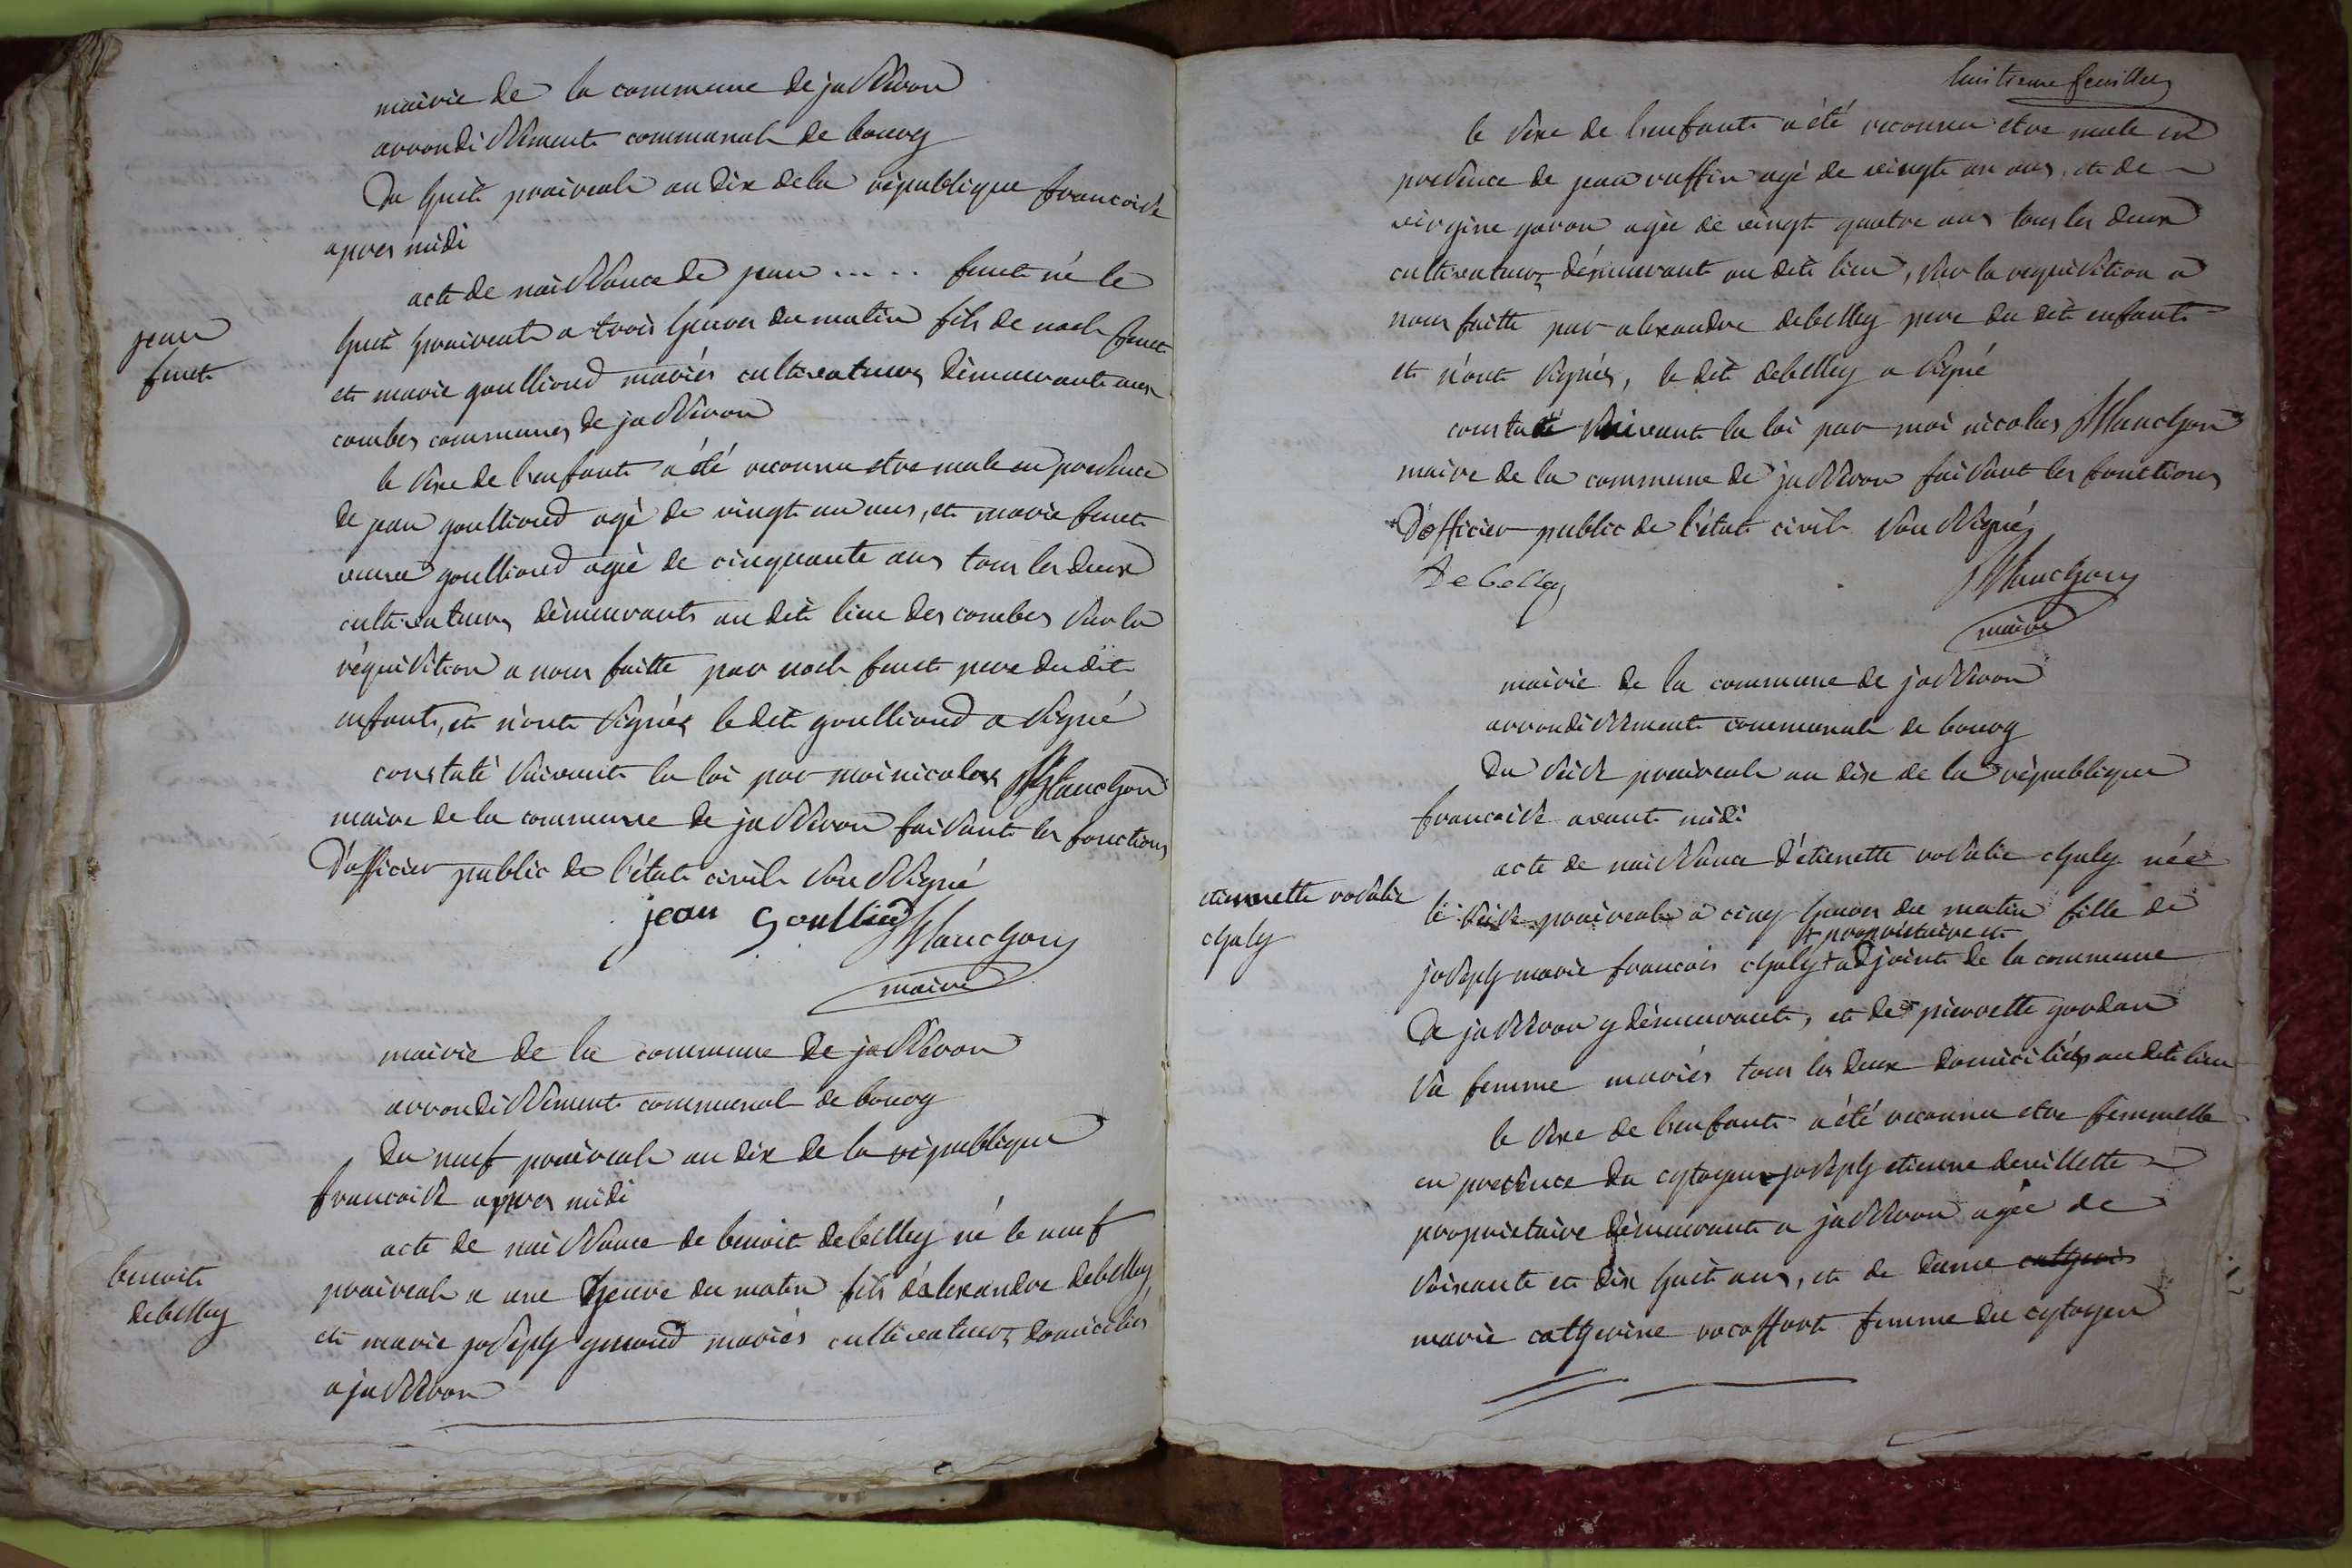 mairie de la commune de jasseron
arrondissement communal de bourg
Du huit prairial an dix de la république francoise
apres midi
acte de naissance de jean ..... furet né le
jean
furet
huit prairial a trois heures du matin fils de noel furet
et marie goulliond mariés cultivateurs démeurants aux
combes communes de jasseron
le sexe de l'enfant a été reconnu etre male en presence
de jean goulliond agé de vingt un ans, et marie furet
veuve goulliond agée de cinquante ans tous les deux
cultivateurs démeurants au dit lieu des combes sur la
réquisition a nous faitte par noel furet pere du dit
enfant, et n'ont signés le dit goulliond a signé
constaté suivant la loi par moi nicolas
maire de la commune de jasseron faisant les fonctions
D'officier public de l'état civil soussigné
jean Goulliod
maire
mairie de la commune de jasseron
arrondissement communal de bourg
Du neuf prairial an dix de la république
francoise apres midi
acte de naissance de benoit debelley né le neuf
benoit
debelley
prairial a une heure du matin fils d'alexandre debelley
et marie joseph mariés cultivateurs domiciliés
a jasseron
huitieme feuillet
le sexe de l'enfant a été reconnu etre male en
presence de jean ruffin agé de vingt un ans, et de
virgine agée de vingt quatre ans tous les deux
cultivateurs démeurant au dit lieu, sur la requisition a
nous faitte par alexandre debelley pere du dit enfant
et n'ont signés, le dit debelley a signé
constaté suivant la loi par moi nicolas
maire de la commune de jasseron faisant les fonctions
D'officier public de l'état civil soussigné
Debelley
maire
mairie de la commune de jasseron
arrondissement communal de bourg
Du seise prairial an dix de la république
francoise avant midi
acte de naissance d'étienette rosalie chaly née
etiennette rosalie
chaly
le seise prairial a cinq heures du matin fille de
+ proprietaire et
joseph marie francois chaly + adjoint de la commune
De jasseron y démeurant, et de pierrette
sa femme mariés tous les deux domiciliés au dit lieu
le sexe de l'enfant a été reconnu etre femmelle
en presence du cytoyen joseph etienne devillette
proprietaire démeurant a jasseron agée de
soixante et dix huit ans, et de dame catheri
marie catherine rocoffort femme du cytoyen